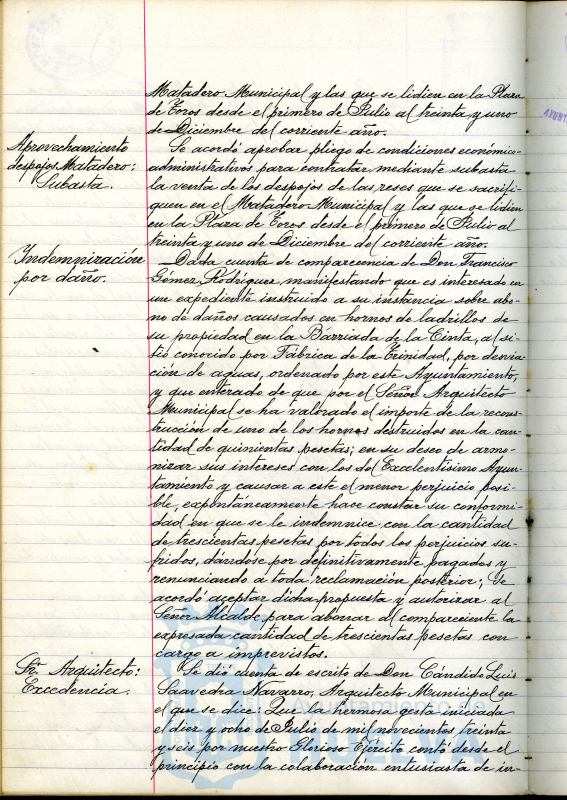 Matadero Municipal y las que se lidien en la Plaza
de Toros desde el primero de Julio al treinta y uno
de Diciembre del corriente año.
Aprovechamiento
despojos Matadero:
Subasta.
Se acordó aprobar pliego de condiciones económico-
administrativas para contratar mediante subasta
la venta de los despojos de las reses que se sacrifi-
quen en el Matadero Municipal y las que se lidien
en la Plaza de Toros desde el primero de Julio al
treinta y uno de Diciembre del corriente año.
Indemnización
por daño.
Dada cuenta de comparecencia de Don Francisco
Gómez Rodríguez manifestando que es interesado en
un expediente instruido a su instancia sobre abo-
no de daños causados en hornos de ladrillos de
su propiedad en la Barriada de la Cinta, al si-
tio conocido por Fábrica de la Trinidad, por desvia-
ción de aguas, ordenado por este Ayuntamiento,
y que enterado de que por el Señor Arquitecto
Municipal se ha valorado el importe de la recons-
trucción de uno de los hornos destruidos en la can-
tidad de quinientas pesetas; en su deseo de armo-
nizar sus intereses con los del Excelentísimo Ayun-
tamiento y causar a este el menor perjuicio posi-
ble, expontáneamente hace constar su conformi-
dad en que se le indemnice con la cantidad
de trescientas pesetas por todos los perjuicios su-
fridos, dándose por definitivamente pagados y
renunciando a toda reclamación posterior; Se
acordó aceptar dicha propuesta y autorizar al
Señor Alcalde para abonar al compareciente la
expresada cantidad de trescientas pesetas con
cargo a imprevistos.
Sr. Arquitecto:
Excedencia.
Se dió cuenta de escrito de Don Cándido Luis
Saavedra Navarro, Arquitecto Municipal en
el que se dice: Que la hermosa gesta iniciada
el diez y ocho de Julio de mil novecientos treinta
y seis por nuestro Glorioso Ejército contó desde el
principio con la colaboración entusiasta de in-
Ayuntamiento de